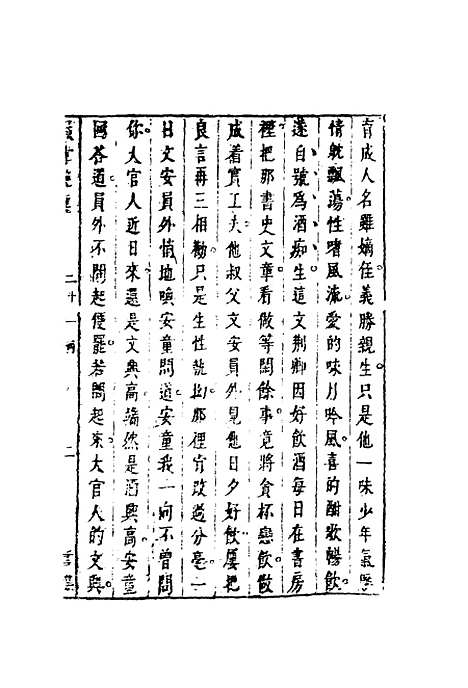 育成人名雖嫡侄義勝親生只是他一味少年氣
情躭飄蕩性嗜風流愛的味月吟風喜的酣歌暢飲
遂自號爲酒痴生這文荆卿因好飲酒每日在書房
裡把那書史文章看做等閑餘事竟將貪杯戀飲做
成着實工夫他叔父文安員外見他日夕好飲屢把
良言再三相勸只是生性執拗那裡肯改道分毫一
日文安員外悄地喚安童問道安童我一向不曾問
你大官人近日來還是文興高還是酒興高安童
回答道員外不問起便罷若問起來大官人的文興
二十一
二